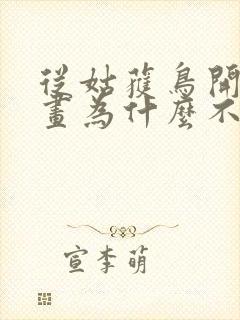 從姑蒦鳥開
畫為什麼不
宣李萌